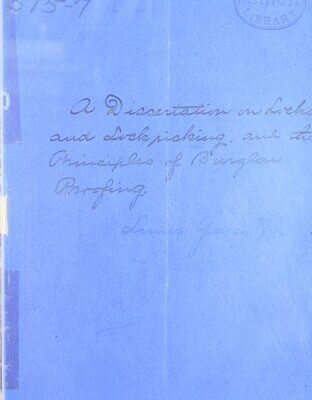 515-7
INSTITUTE
LIBRARY
A Dissertation on Locks
and Lockpicking, and the
Principles of Burglar
Proofing.
Linus Yale, Jr.